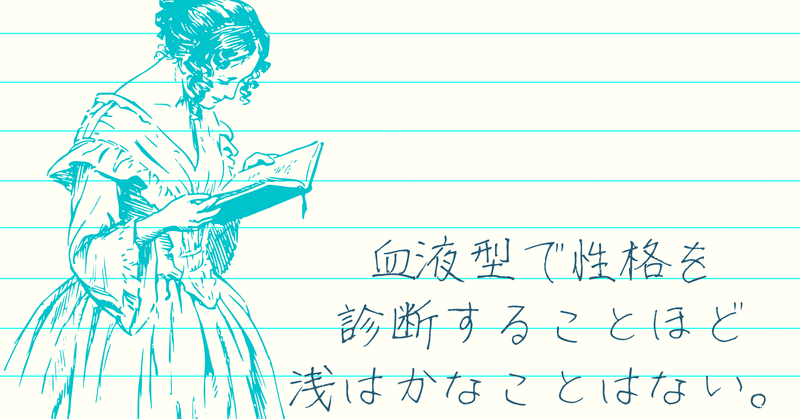 血液型で性格を
診断することほど
浅はかなことはない。